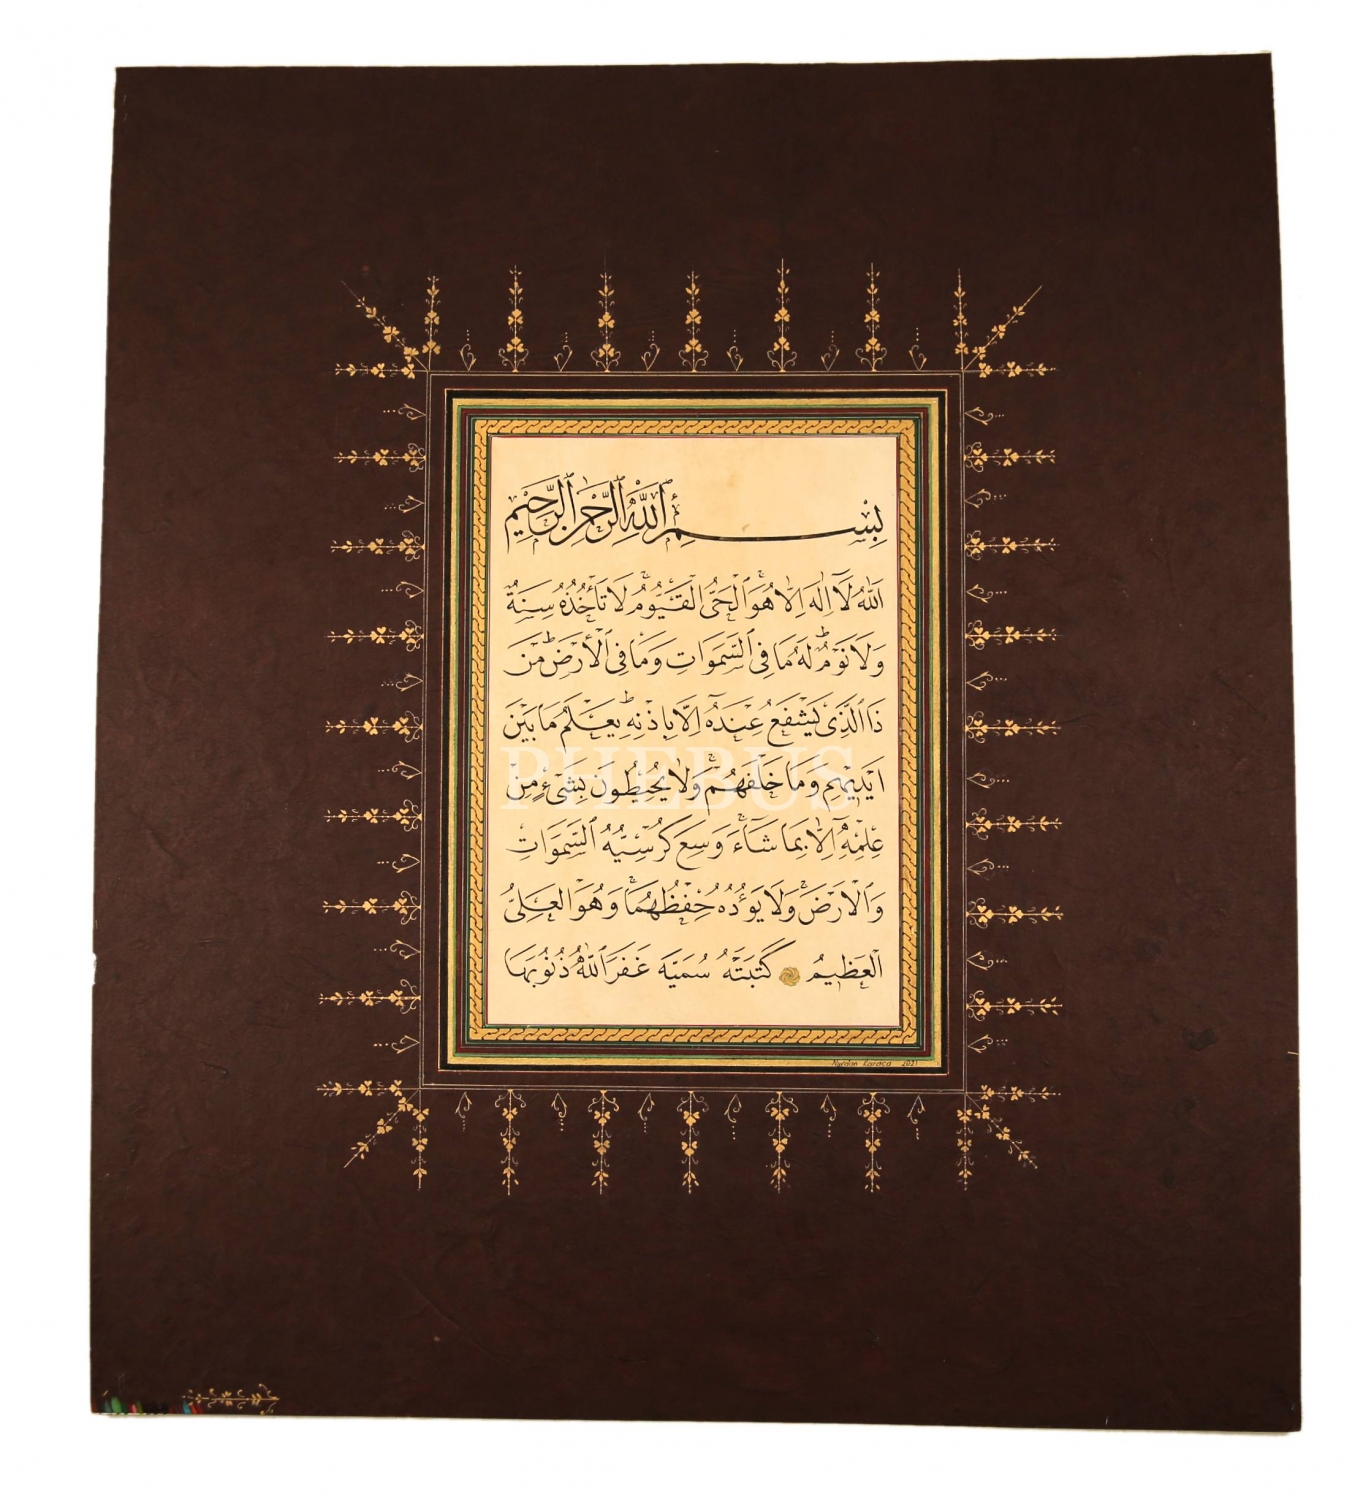 بِسْمِ ٱللّٰهِ ٱلرَّحْمٰنِ ٱلرَّحِيمِ
اَللّٰهُ لَٓا اِلٰهَ اِلَّا هُوَۚ اَلْحَيُّ الْقَيُّومُۚ لَا تَأْخُذُهُ سِنَةٌ
وَلَا نَوْمٌۜ لَهُ مَا فِي السَّمَوَاتِ وَمَا فِي الْاَرْضِۜ مَنْ
ذَا الَّذِي يَشْفَعُ عِنْدَهُٓ اِلَّا بِاِذْنِهِۜ يَعْلَمُ مَا بَيْنَ
اَيْدِيهِمْ وَمَا خَلْفَهُمْۚ وَلَا يُحِيطُونَ بِشَيْءٍ مِنْ
عِلْمِهِٓ اِلَّا بِمَا شَٓاءَۚ وَسِعَ كُرْسِيُّهُ السَّمَوَاتِ
وَالْاَرْضَۚ وَلَا يَؤُدُهُ حِفْظُهُمَاۚ وَهُوَ الْعَلِيُّ
الْعَظِيمُ كَتَبَتْهُ سُمَيَّه غَفَرَ اللّٰهُ ذُنُوبَهَا
Nurdan Karaca 2021
PHEBUS